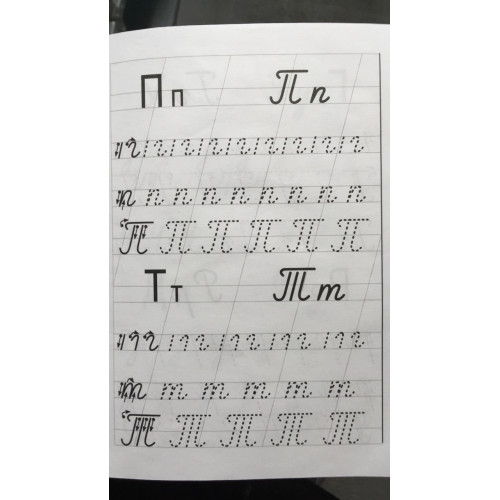 Пп Пп
п п п п п п п п
П П П П П П
Тт Тт
т т т т т т
Т Т Т Т Т